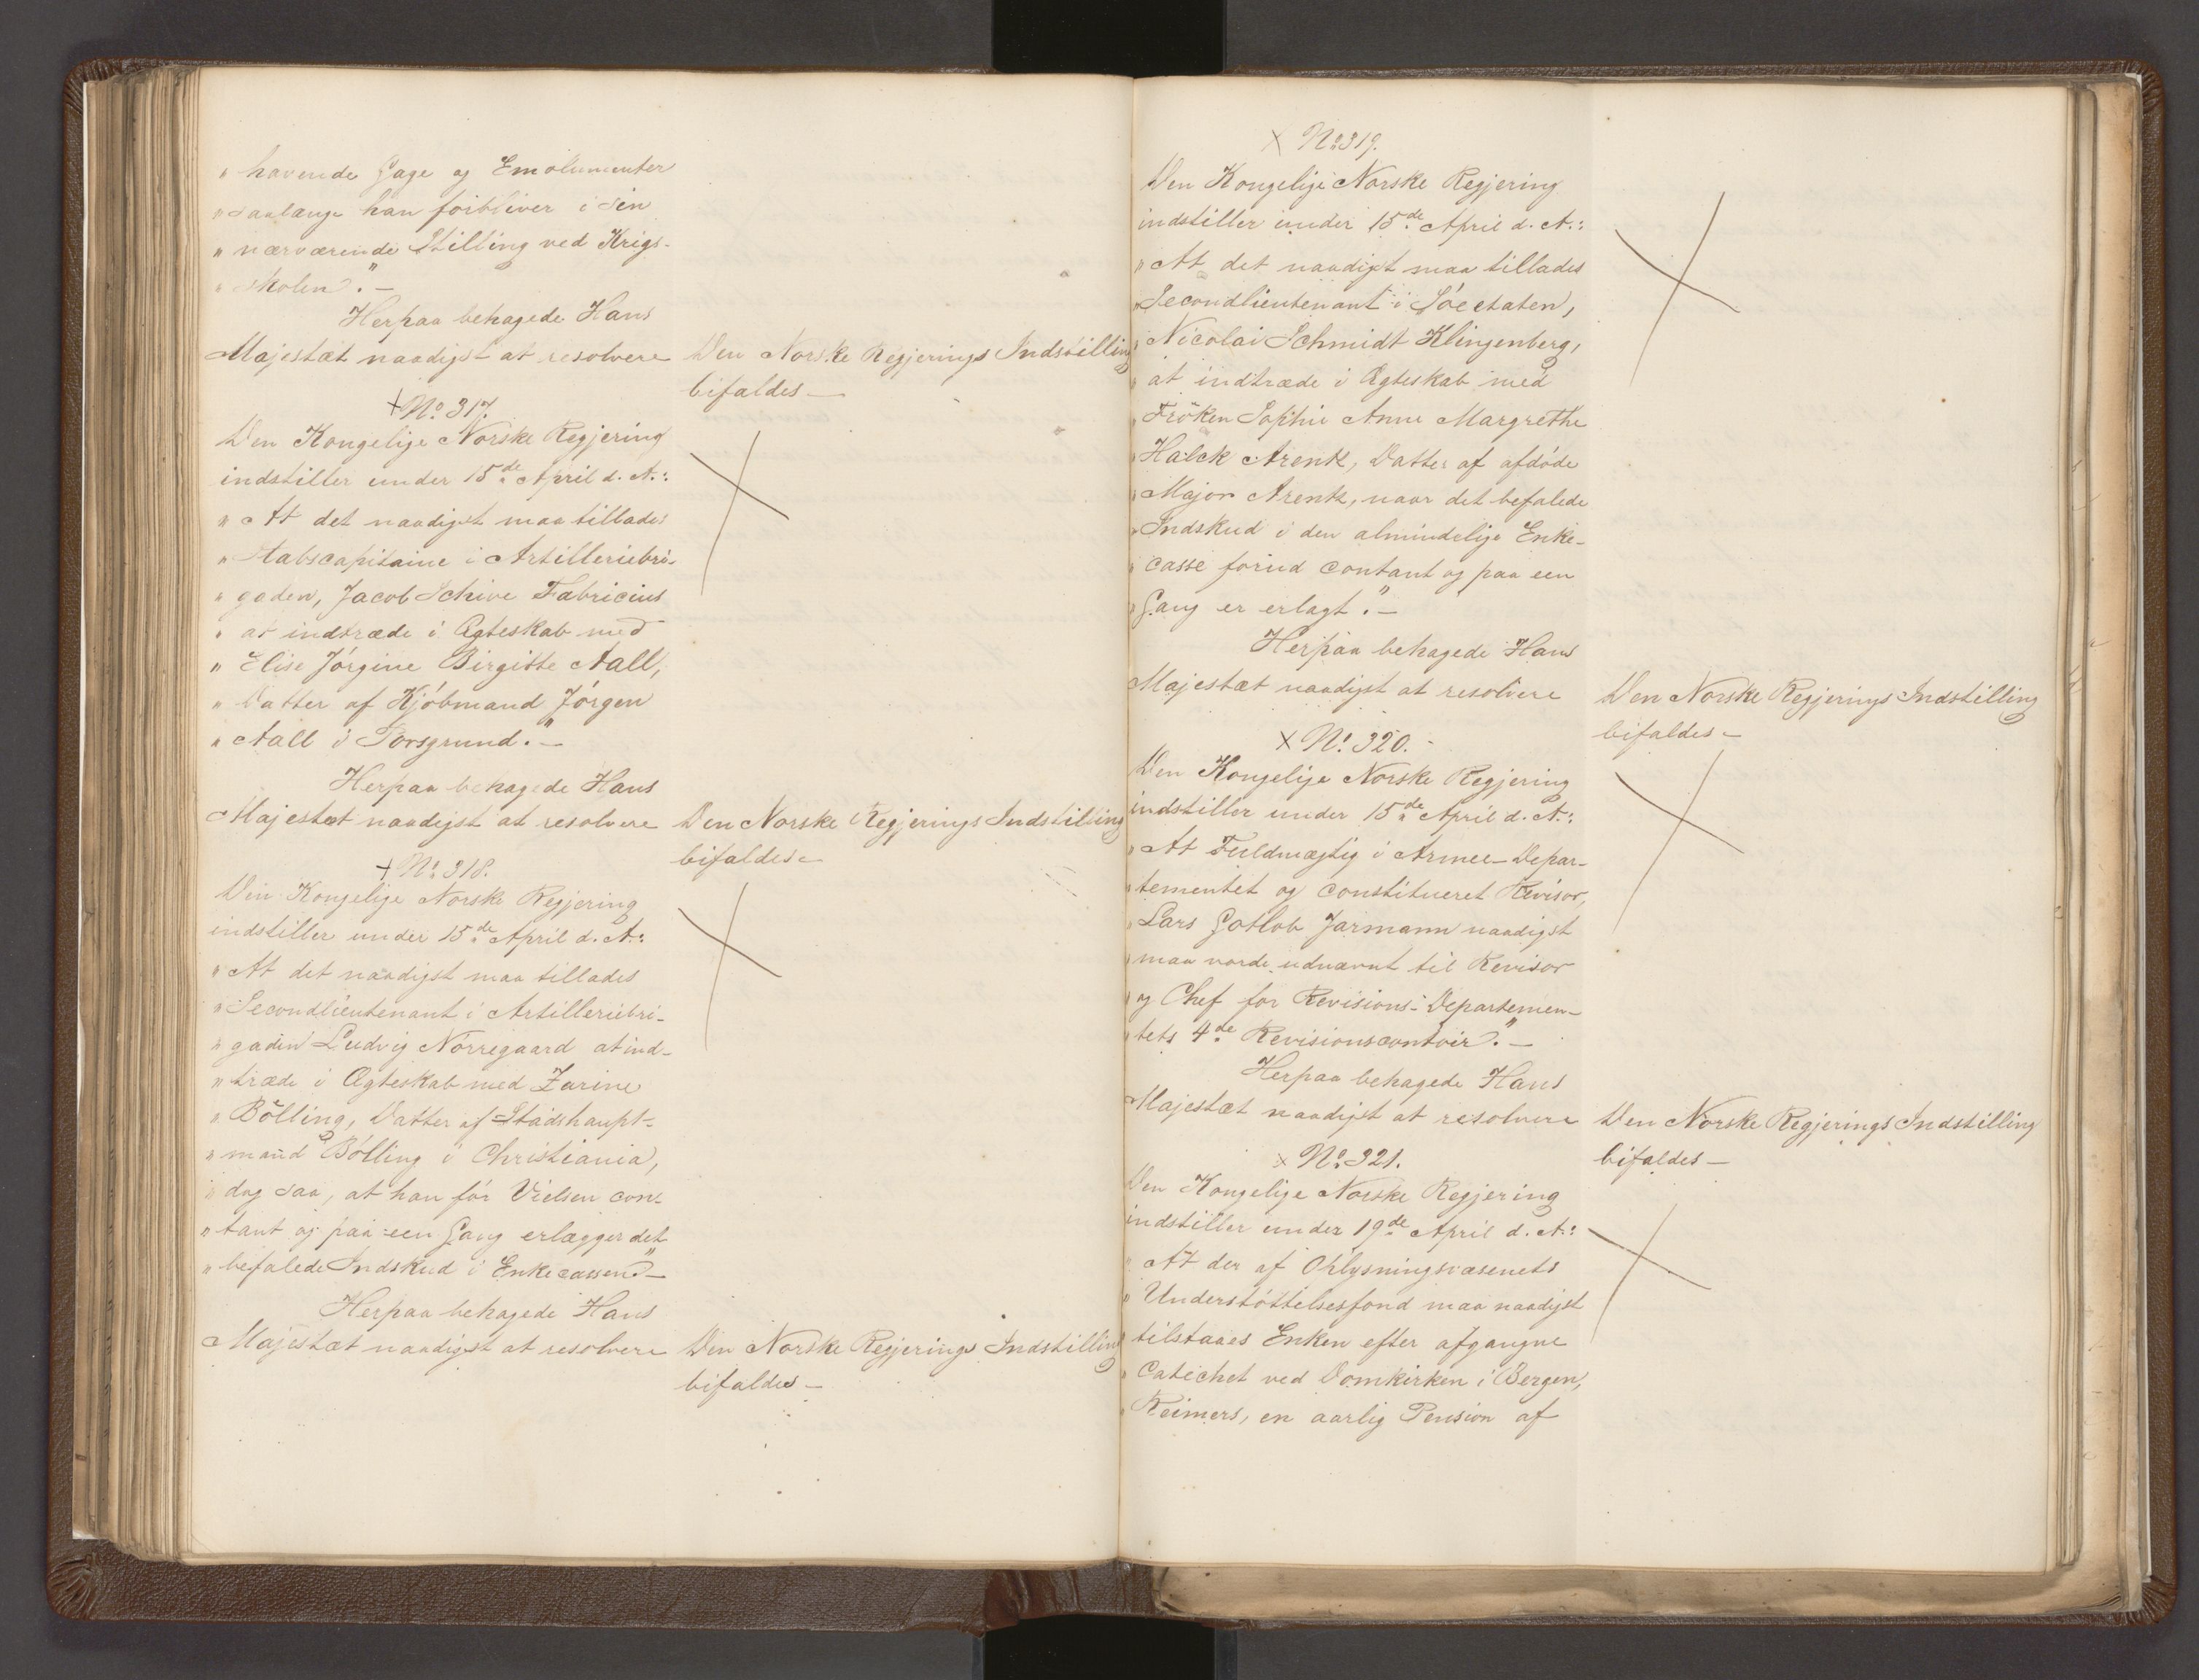 " havende Gage og Emolumenter
" saalænge han forbliver i sin
" nærværende Stilling ved Krigs-
" skolen". —
Herpaa behagede Hans
Majestæt naadigst at resolvere
Den Norske Regjerings Indstilling
bifaldes —
+ No 317.
Den Kongelige Norske Regjering
indstiller under 15de April d. A.:
" At det naadigst maa tillades
" Stabscapitaine i Artilleriebri-
" gaden, Jacob Schive Fabricius
" at indtræde i Ægteskab med
" Elise Jörgine Birgitte Aall,
" Datter af Kjöbmand Jörgen
" Aall i Porsgrund." —
Herpaa behagede Hans
Majestæt naadigst at resolvere
Den Norske Regjerings Indstilling
bifaldes —
+ No 318.
Den Kongelige Norske Regjering
indstiller under 15de April d. A.:
" At det naadigst maa tillades
" Secondlieutenant i Artilleriebri-
" gaden Ludvig Nörregaard at ind-
" træde i Ægteskab med Zarine
" Bölling, Datter af Stadshaupt-
" mand Bölling i Christiania,
" dog saa, at han för Vielsen con-
" tant og paa een Gang erlægger det
" befalede Indskud i Enkecassen" —
Herpaa behagede Hans
Majestæt naadigst at resolvere
Den Norske Regjerings Indstilling
bifaldes —
x No 319.
Den Kongelige Norske Regjering
indstiller under 15de April d. A.:
" At det naadigst maa tillades
" Secondlieutenant i Söeetaten,
" Nicolai Schmidt Klingenberg,
" at indtræde i Ægteskab med
" Fröken Sophie Anne Margrethe
" Halck Arentz, Datter af afdöde
" Major Arentz, naar det befalede
" Indskud i den almindelige Enke-
" casse forud contant og paa een
" Gang er erlagt". —
Herpaa behagede Hans
Majestæt naadigst at resolvere
Den Norske Regjerings Indstilling
bifaldes —
x No 320. -
Den Kongelige Norske Regjering
indstiller under 15de April d. A.:
" At Fuldmægtig i Armee-Depar-
" tementet og constitueret Revisor,
" Lars Gotlob Jarmann naadigst
" maa vorde udnævnt til Revisor
" og Chef for Revisions-Departemen-
" tets 4de Revisionscontoir". —
Herpaa behagede Hans
Majestæt naadigst at resolvere
Den Norske Regjerings Indstilling
bifaldes —
x No 321.
Den Kongelige Norske Regjering
indstiller under 19de April d. A.:
" At der af Oplysningsvæsenets
" Understöttelsesfond maa naadigst
" tilstaaes Enken efter afgangne
" Catechet ved Domkirken i Bergen,
" Reimers, en aarlig Pension af